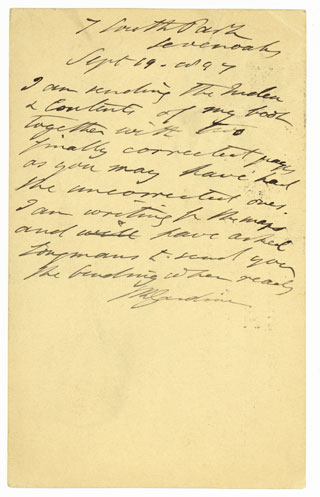 7 South Park
Sevenoaks
Sept 19. 1897
I am sending the Index
& Contents of my book
together with two
finally corrected pages
as you may have had
the uncorrected ones.
I am writing for the maps
and will have asked
Longmans to send you
the binding when ready
Gardiner